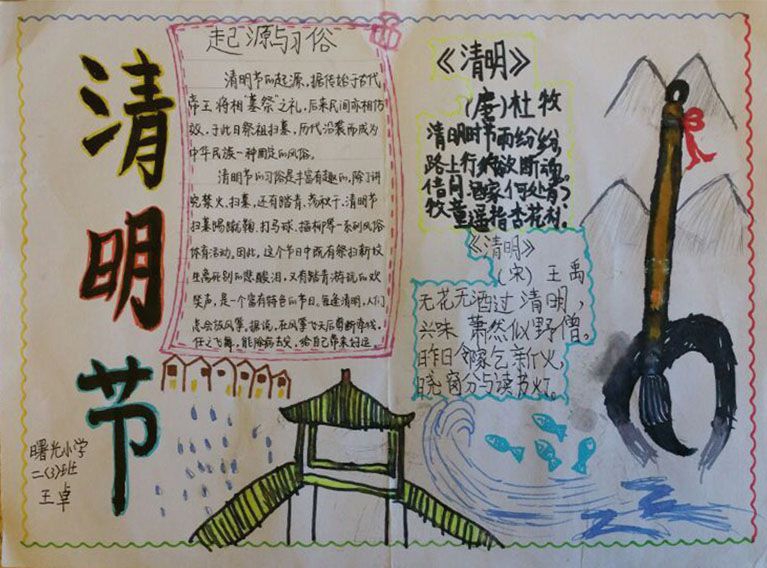 清明节
起源与习俗
清明节的起源,据传始于古代
帝王将相"墓祭"之礼,后来民间亦相仿
效,于此日祭祖扫墓,历代沿袭而成为
中华民族一种固定的风俗。
清明节的习俗是丰富有趣的,除了讲
究禁火、扫墓,还有踏青、荡秋千、清明节
扫墓踢蹴鞠、打马球、插柳等一系列风俗
体育活动。因此,这个节日中既有祭扫新坟
生离死别的悲酸泪,又有踏青游玩的欢
笑声,是一个富有特色的节日。每逢清明,人们
总会放风筝。据说,在风筝飞天后剪断牵线,
任之飞舞,能除病去灾,给自己带来好运。
《清明》
(唐)杜牧
清明时节雨纷纷,
路上行欲断魂。
借问酒家何处有?
牧童遥指杏花村。
《清明》
(宋)王禹
无花无酒过清明,
兴味萧然似野僧。
昨日邻家乞新火,
晓窗分与读书灯。
曙光小学
二(3)班
王卓